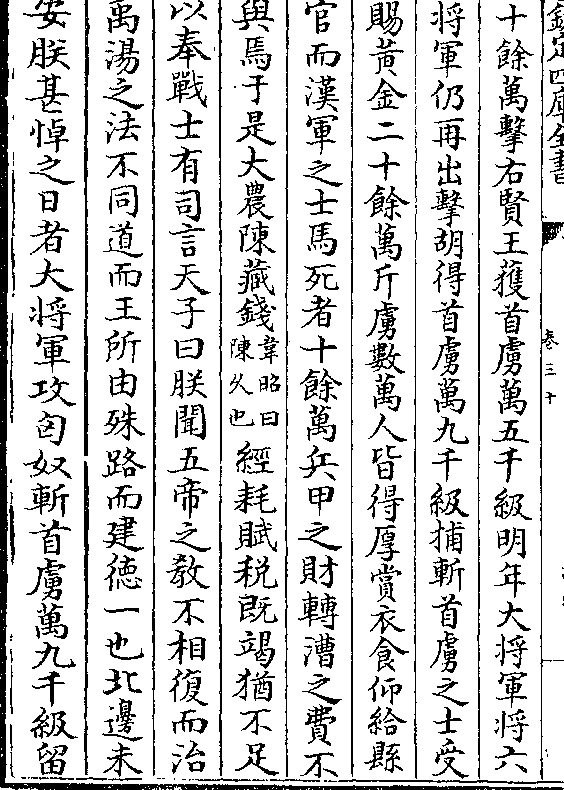 欽定四庫全書
卷三十
十餘萬擊右賢王獲首虜萬五千級明年大將軍將六
將軍仍再出擊胡得首虜萬九千級捕斬首虜之士受
賜黃金二十餘萬斤虜數萬人皆得厚賞衣食仰給縣
官而漢軍之士馬死者十餘萬兵甲之財轉漕之費不
與焉于是大農陳藏錢韋昭曰陳久也經耗賦稅既竭猶不足
以奉戰士有司言天子曰朕聞五帝之教不相復而治
禹湯之法不同道而王所由殊路而建德一也北邊未
安朕甚悼之日者大將軍攻匈奴斬首虜萬九千級留